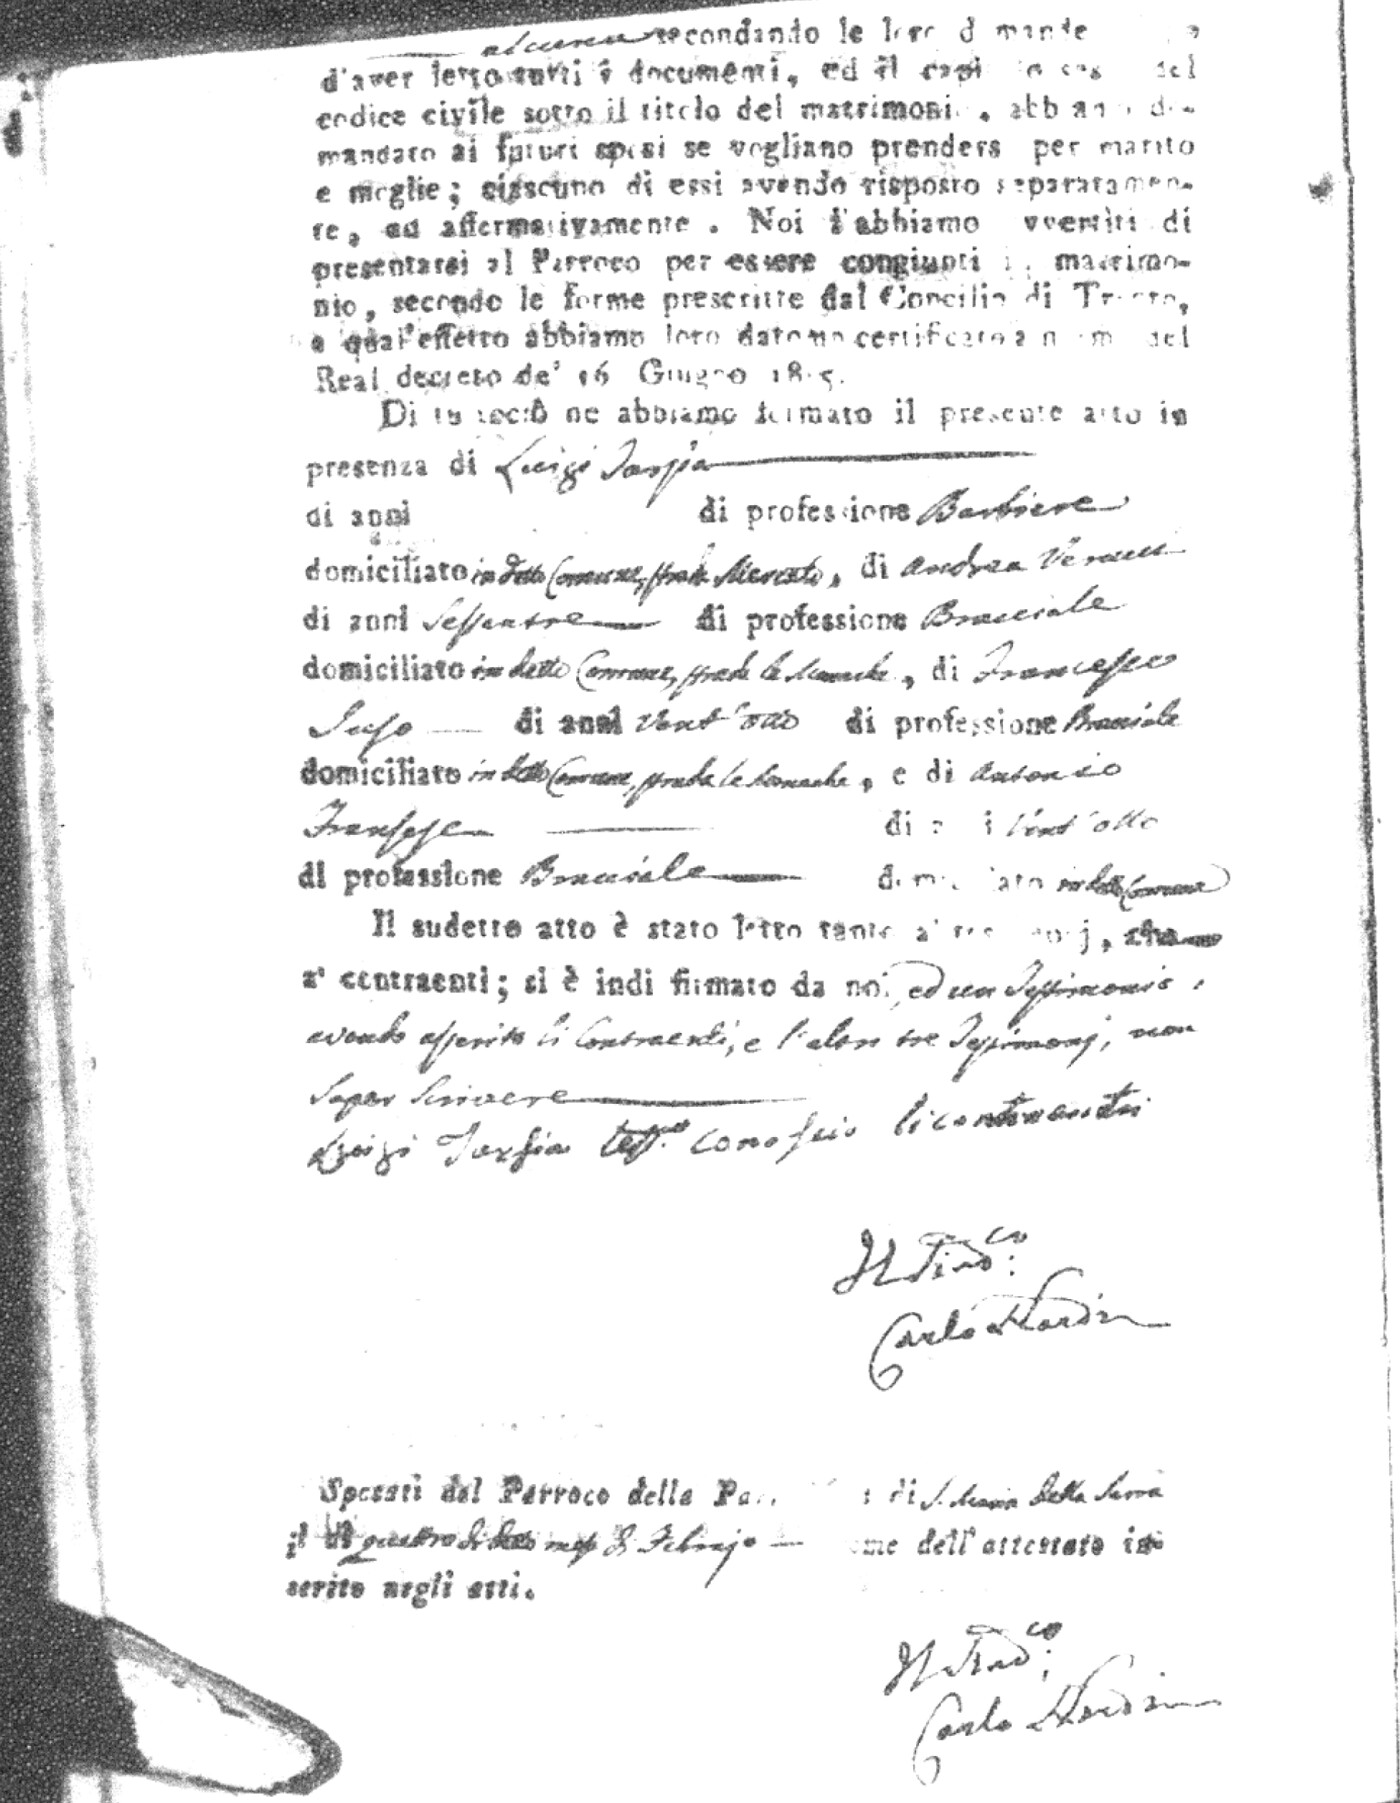 alcuna secondando le loro d mande
d'aver letto tutti i documenti, ed il capi to del
codice civile sotto il titolo del matrimoni , abb a de-
mandato ai futuri sposi se vogliano prenders per marito
e moglie; ciascuno di essi avendo risposto separatamen-
te, ed affermativamente . Noi l'abbiamo vvertiti di
presentarsi al Parroco per essere congiunti i matrimo-
nio, secondo le forme prescritte dal Concilio di Trento,
a qual'effetto abbiamo loro dato un certificato a n m del
Real decreto de' 16 Giugno 18 5.
Di tu tociò ne abbiamo formato il presente atto in
presenza di Luigi Tarsia
di anni di professione Barbiere
domiciliato in detto Comune, strada Mercato, di Andrea
di anni Sessantatre di professione Bracciale
domiciliato in detto Comune, strada le , di Francesco
di anni vent'otto di professione Bracciale
domiciliato in detto Comune, strada le , e di Antonio
di i vent'otto
di professione Bracciale dom iato in detto Comune
Il sudetto atto è stato letto tanto a' tes onj, che
a' contraenti; si è indi firmato da noi, ed un Testimonio,
avendo asserito li Contraenti, e l'altri tre Testimonj, non
saper scrivere
Luigi Tarsia test.o conoscio li contraenti
Il Sind.co:
Carlo
Sposati dal Parroco della Par di S. Maria della
il dì quattro di detto mese di Febrajo ome dell'attestato in-
serito negli atti.
Il Sind.co:
Carlo